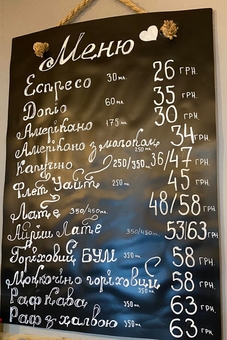 Меню
Еспресо 30 мл. 26 ГРН.
Допіо 60 мл. 35 ГРН.
Амерікано 175 мл. 30 ГРН.
Амерікано з молоком 250 мл. 34 ГРН.
Капучино 250/350 мл. 36/47 ГРН.
Флет Уайт 250 мл. 45 ГРН.
Лате 350/450 мл. 48/58 ГРН.
Айріш Лате 350/450 мл. 53/63 ГРН.
Горіховий БУМ 350 мл. 58 ГРН.
Моккочіно горіховий 350 мл. 58 ГРН.
Раф Кава 350 мл. 63 ГРН.
Раф з халвою 350 мл. 63 ГРН.